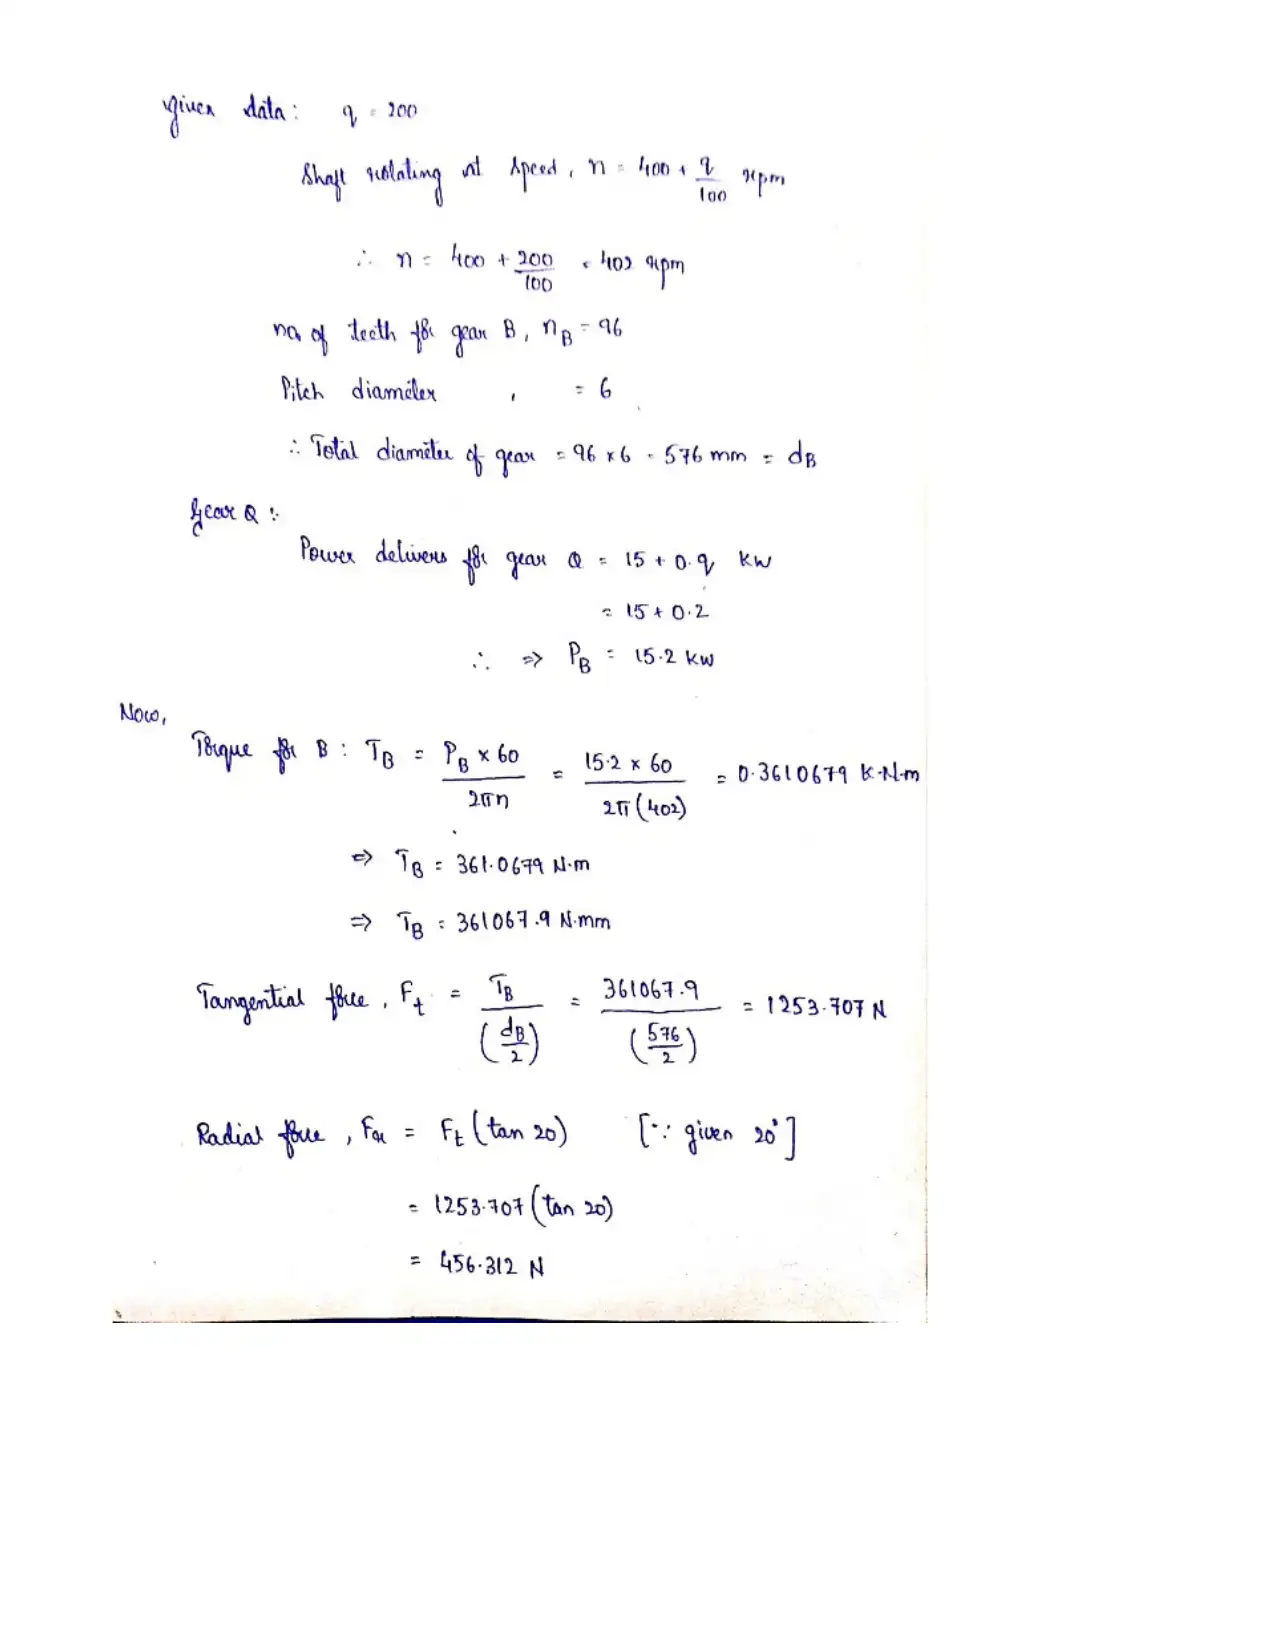 given data: q = 200
Shaft rotating at speed, n = 400 + q/100 rpm
∴ n = 400 + 200/100 = 402 rpm
no. of teeth for gear B, nB = 96
Pitch diameter, = 6
∴ Total diameter of gear = 96 x 6 = 576 mm = dB
Gear Q :-
Power delivers for gear Q = 15 + 0.q kw
= 15 + 0.2
∴ ⇒ PB = 15.2 kw
Now,
Torque for B : TB = PB x 60 / 2πn = 15.2 x 60 / 2π(402) = 0.3610679 K-N-m
⇒ TB = 361.0679 N.m
⇒ TB = 361067.9 N.mm
Tangential force, Ft = TB / (dB/2) = 361067.9 / (576/2) = 1253.707 N
Radial force, Fr = Ft (tan 20) [∵ given 20°]
= 1253.707 (tan 20)
= 456.312 N